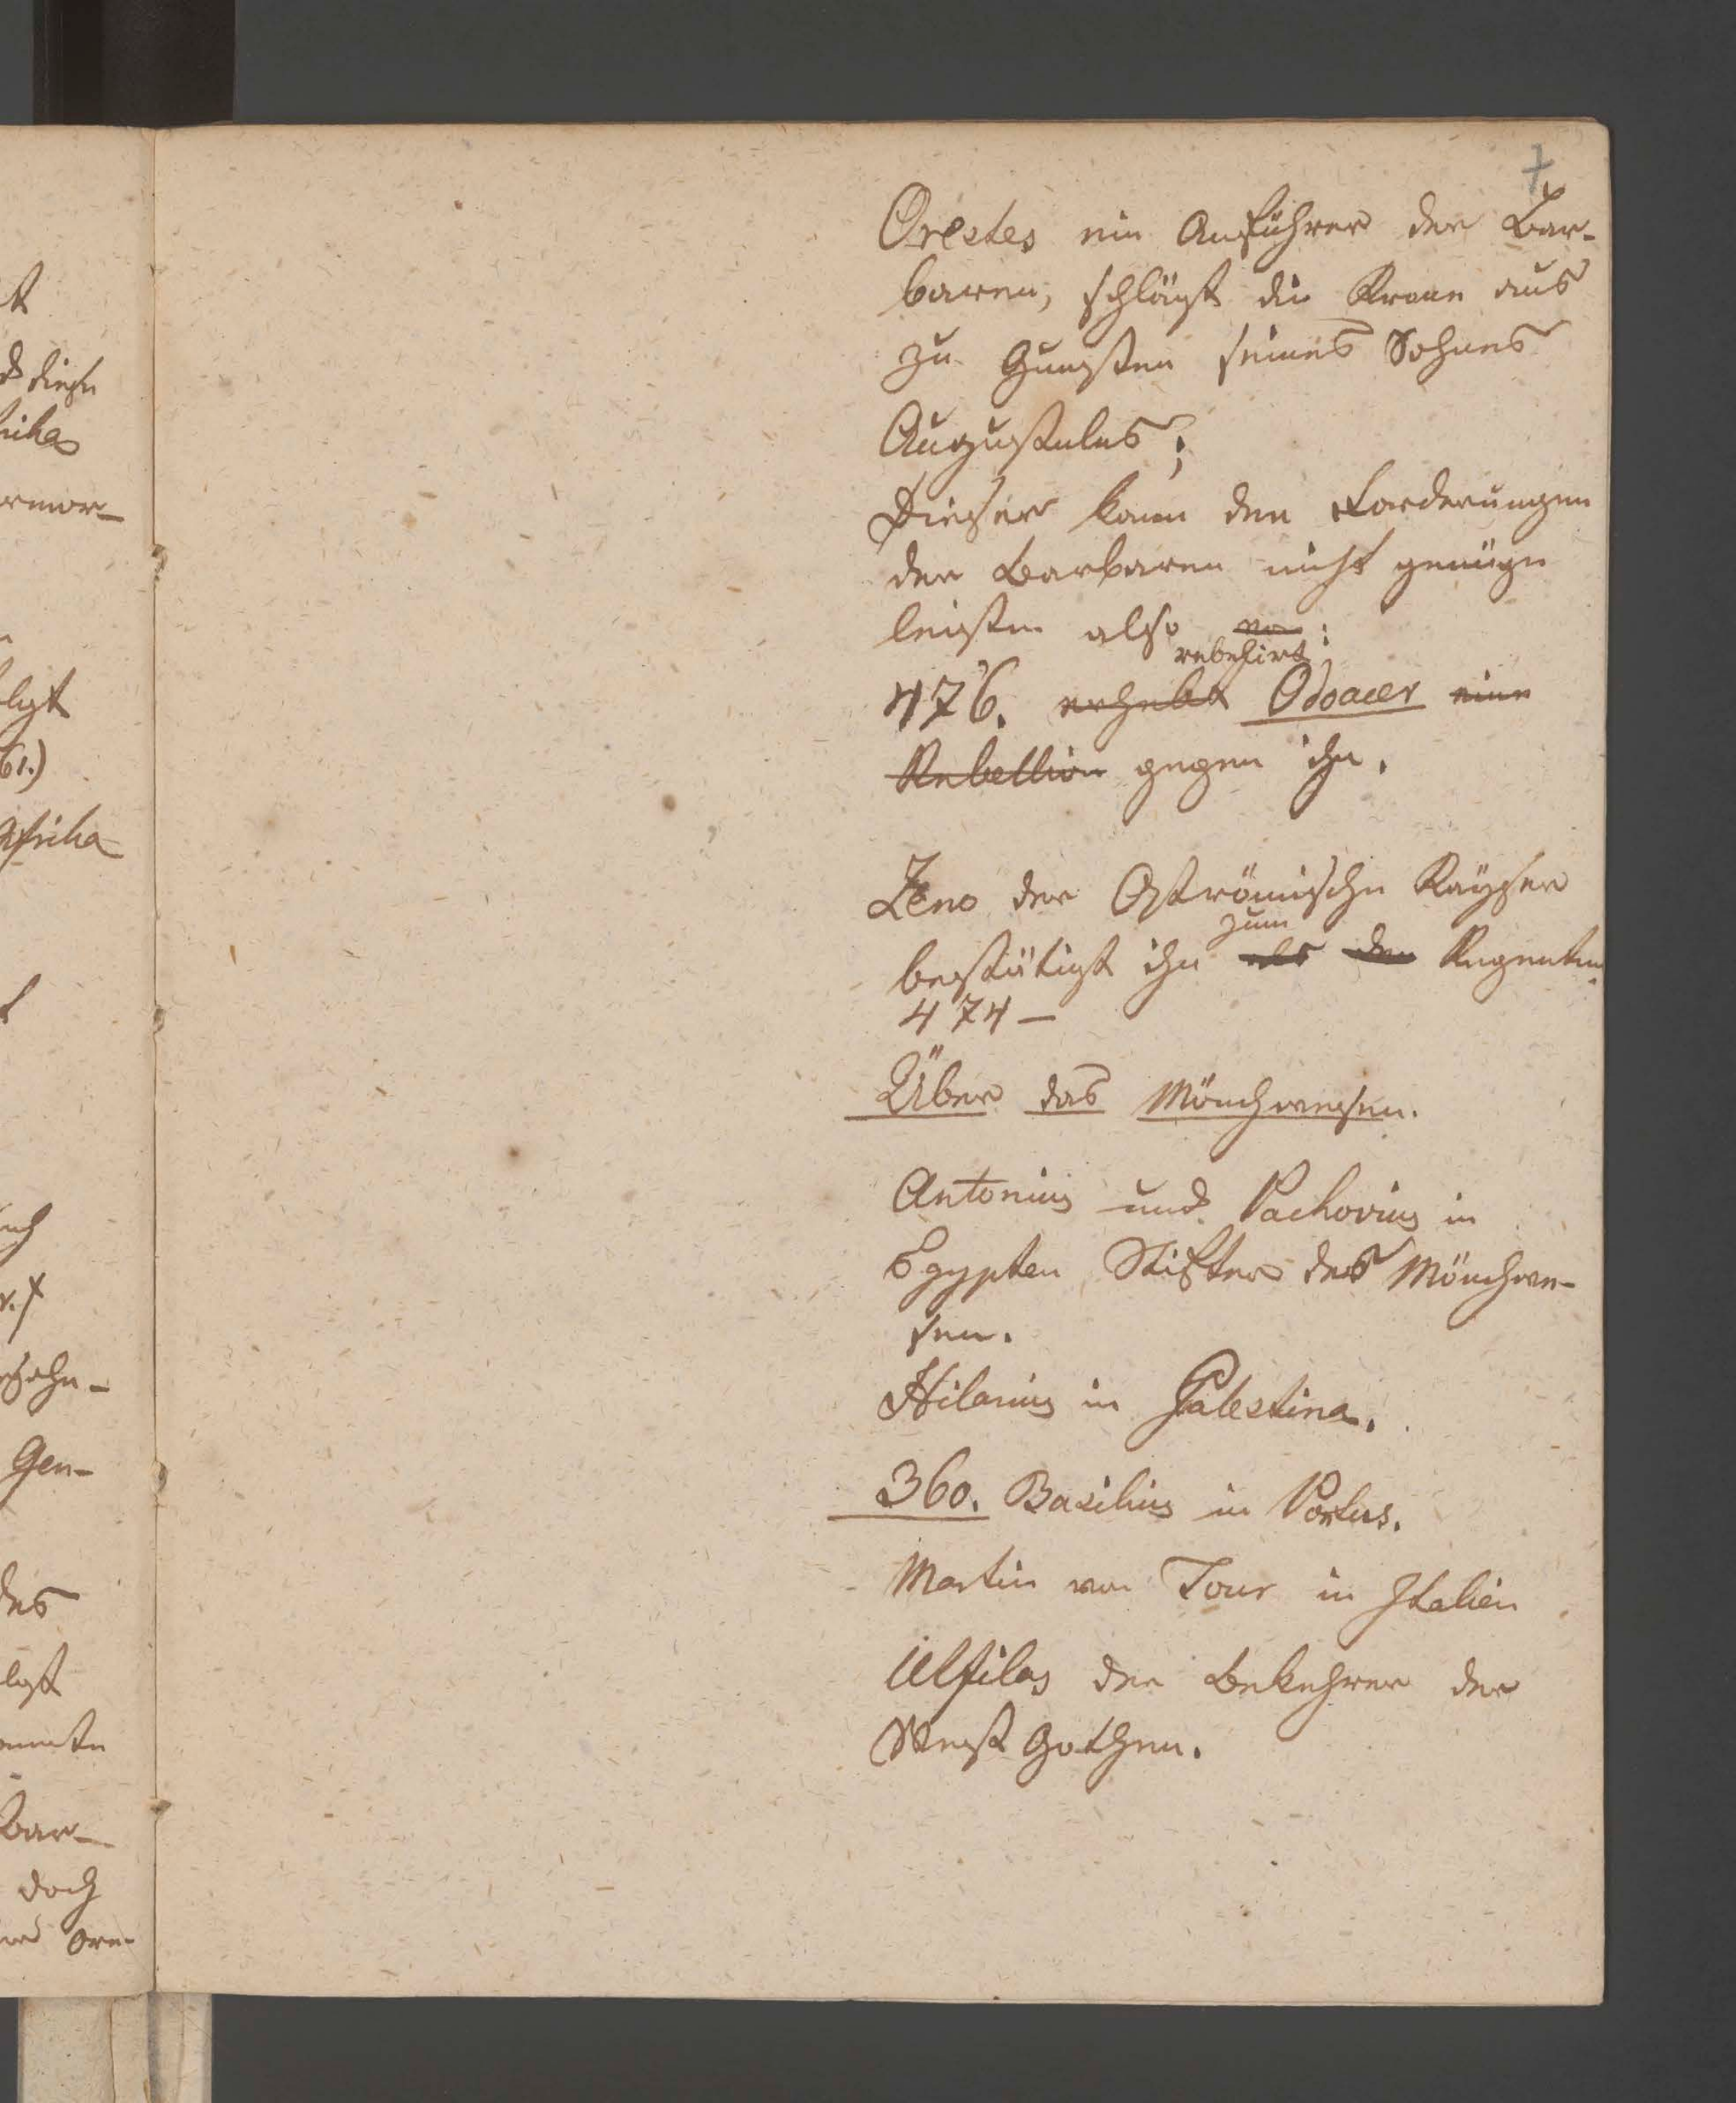 t
d diese
rika
ermor-
lgt
61.)
Afrika
t
sch
r. f
Gen-
des
lgt
Bar-
doch
Ore-
7.
Orestes ein Anführer der Bar-
baren, schlägt die Krone aus
zu Gunsten seines Sohnes
Augustulus;
Dieser kann den Forderungen
der Barbaren nicht genüge
leisten also :
rebellirt
476. erhebt Odoacer eine
Rebellion gegen ihn.
Zeno der Oströmische Kayser
zum
bestätigt ihn als den Regenten.
474 —
Über das Mönchwesen.
Antonius und Pachovius in
Egypten Stifter des Mönchwe-
sen.
Hilarius in Palestina.
360. Basilius in Pontus.
Martin von Tour in Italien
Ulfilas der Bekehrer der
West Gothen.